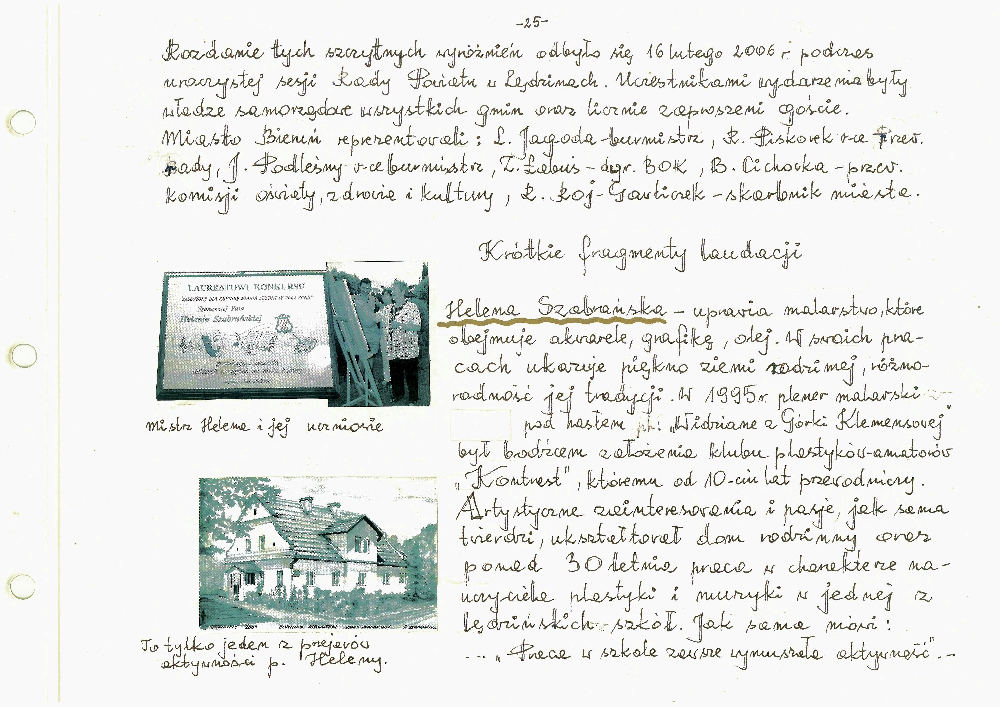 -25-
Rozdanie tych szczytnych wyróżnień odbyło się 16 lutego 2006 r podczas
uroczystej sesji Rady Powiatu w Lędzinach. Uczestnikami wydarzenia były
władze samorządowe wszystkich gmin oraz licznie zaproszeni goście.
Miasto Bieruń reprezentowali: L. Jagoda-burmistrz, R. Piskorek v-ce Przew.
Rady, J. Podleśny v-ce burmistrz, Z. Labus - dyr. BOK, B. Cichocka - przew.
komisji oświaty, zdrowia i kultury, R. Roj-Gawliczek - skarbnik miasta.
Krótkie fragmenty laudacji
LAUREATOWI KONKURSU
Szanownej Pani
Helenie Szabrańskiej
Mistrz Helena i jej uczniowie
Helena Szabrańska - uprawia malarstwo, które
obejmuje akwarele, grafikę, olej. W swoich pra-
cach ukazuje piękno ziemi rodzimej, różno-
rodność jej tradycji. W 1995 r. plener malarski
pod hasłem pt: „Widziane z Górki Klemensowej”
był bodźcem założenia klubu plastyków-amatorów
„Kontrast”, któremu od 10-ciu lat przewodniczy.
Artystyczne zainteresowania i pasje, jak sama
twierdzi, ukształtował dom rodzinny oraz
ponad 30 letnia praca w charakterze na-
uczyciela plastyki i muzyki w jednej z
lędzińskich szkół. Jak sama mówi:
... „Praca w szkole zawsze wymuszała aktywność”. -
To tylko jeden z przejawów
aktywności p. Heleny.